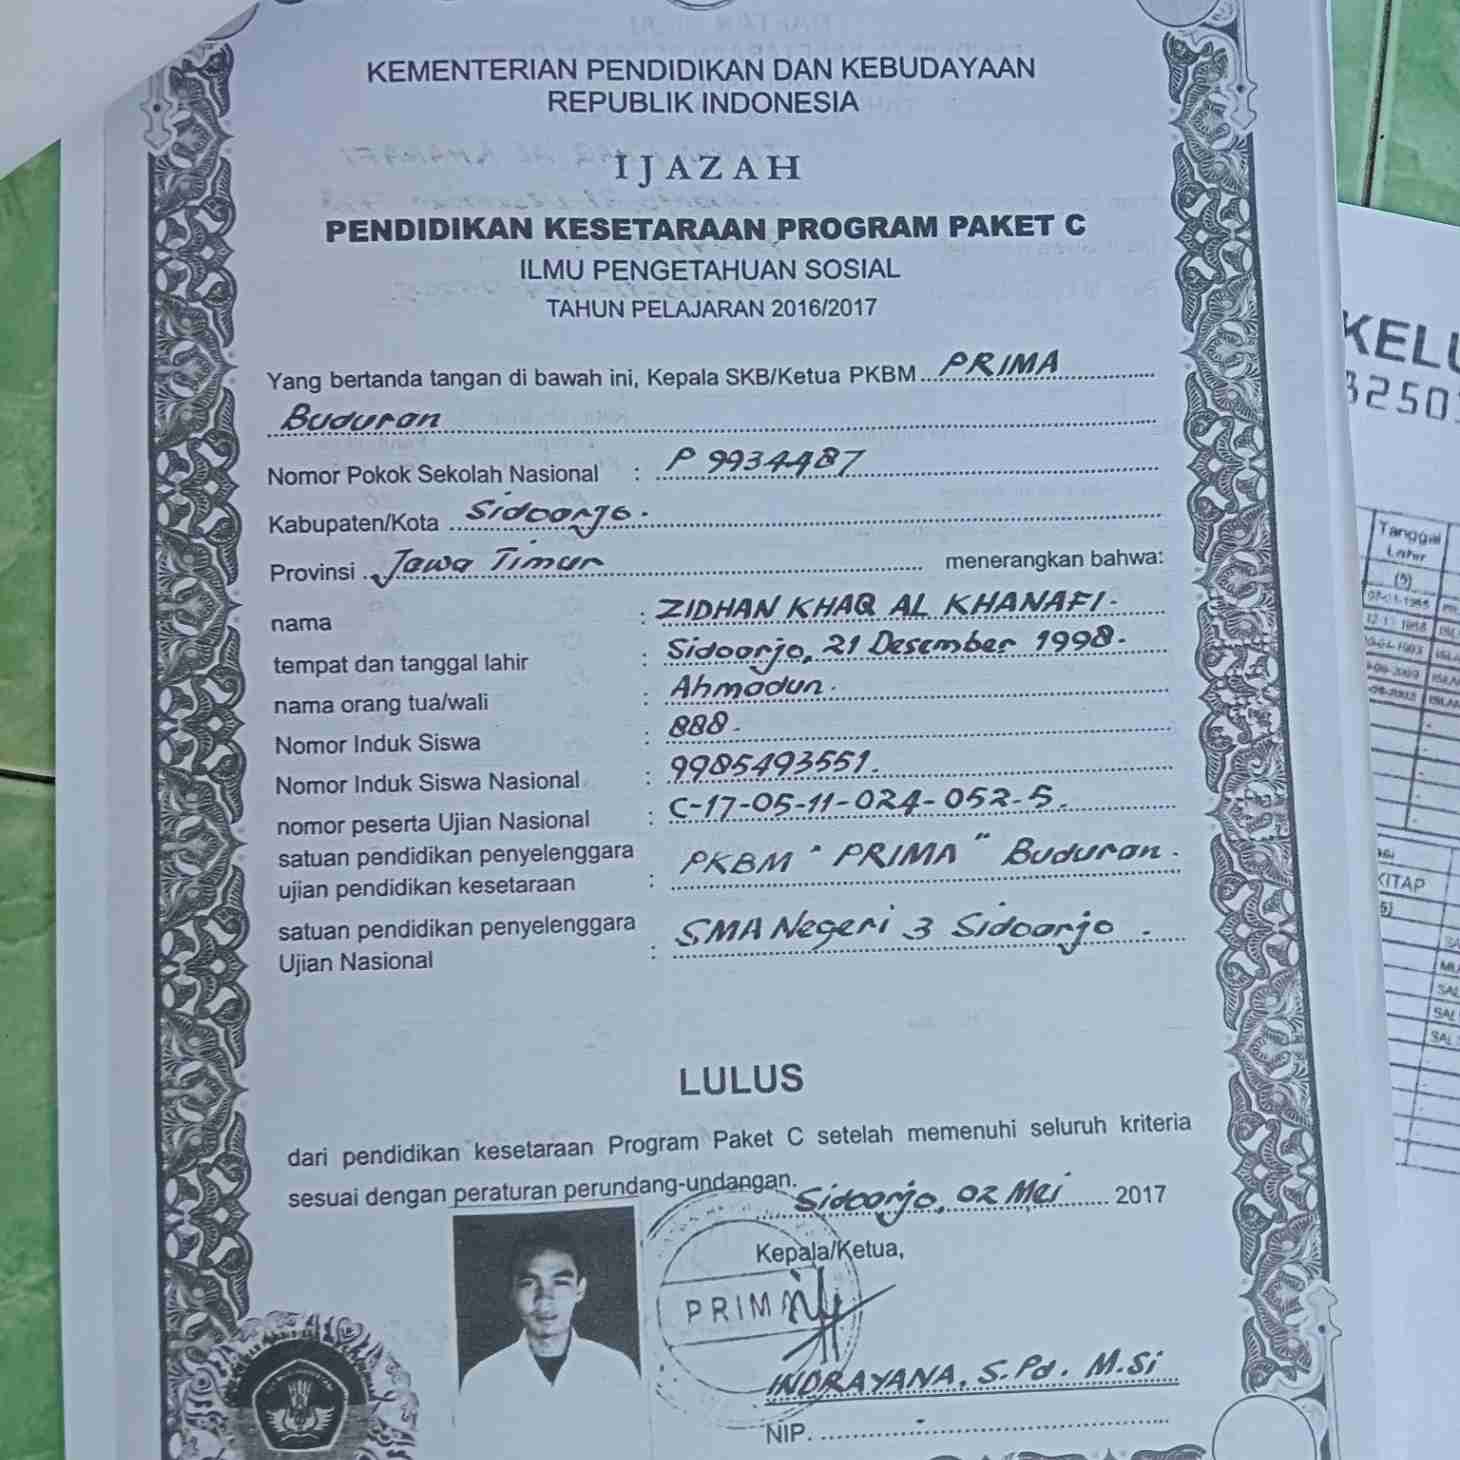 KEMENTERIAN PENDIDIKAN DAN KEBUDAYAAN
REPUBLIK INDONESIA
IJAZAH
PENDIDIKAN KESETARAAN PROGRAM PAKET C
ILMU PENGETAHUAN SOSIAL
TAHUN PELAJARAN 2016/2017
Yang bertanda tangan di bawah ini, Kepala SKB/Ketua PKBM PRIMA
Buduran
Nomor Pokok Sekolah Nasional : P 9934487
Kabupaten/Kota Sidoarjo.
Provinsi Jawa Timur menerangkan bahwa:
nama : ZIDHAN KHAQ AL KHANAFI.
tempat dan tanggal lahir : Sidoarjo, 21 Desember 1998.
nama orang tua/wali : Ahmadun.
Nomor Induk Siswa : 888.
Nomor Induk Siswa Nasional : 9985493551.
nomor peserta Ujian Nasional : C-17-05-11-024-052-5.
satuan pendidikan penyelenggara
ujian pendidikan kesetaraan : PKBM "PRIMA" Buduran.
satuan pendidikan penyelenggara
Ujian Nasional : SMA Negeri 3 Sidoarjo.
LULUS
dari pendidikan kesetaraan Program Paket C setelah memenuhi seluruh kriteria
sesuai dengan peraturan perundang-undangan.
Sidoarjo, 02 Mei 2017
Kepala/Ketua,
PRIMA
INDRAYANA, S.Pd. M.Si
NIP.
KELU
Tanggal
Lahir
(5)
KITAP